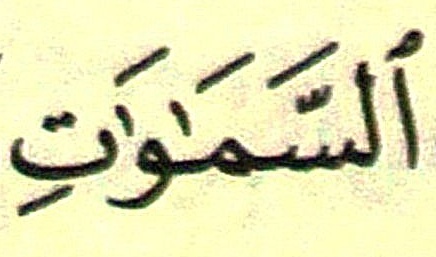 ٱلسَّمَٰوَٰتِ